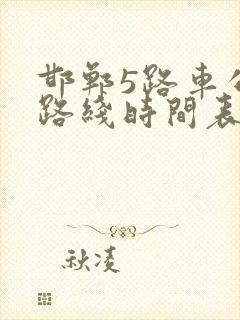 邯鄲5路車公
路綫時間表
秋凌